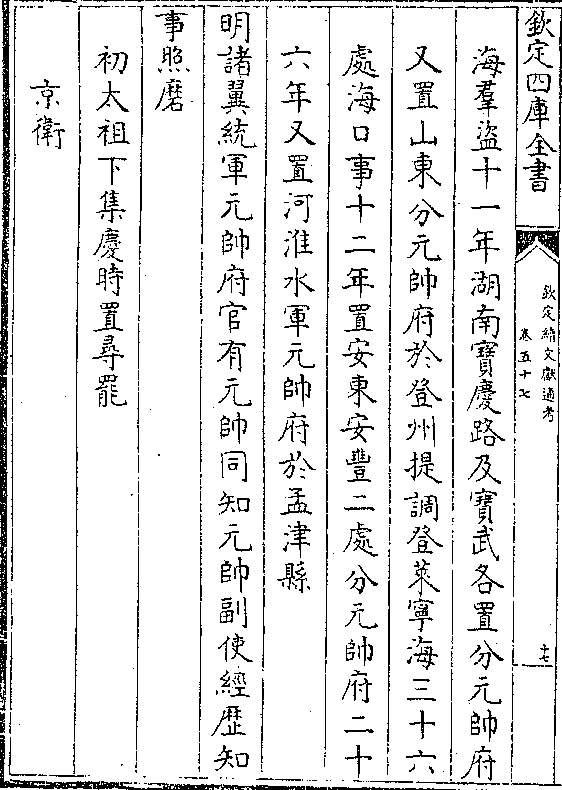 欽定四庫全書
欽定續文獻通考
卷五十七
十七
海羣盜十一年湖南寶慶路及寶武各置分元帥府
又置山東分元帥府於登州提調登萊寧海三十六
處海口事十二年置安東安豐二處分元帥府二十
六年又置河淮水軍元帥府於孟津縣
明諸翼統軍元帥府官有元帥同知元帥副使經歷知
事照磨
初太祖下集慶時置尋罷
京衛